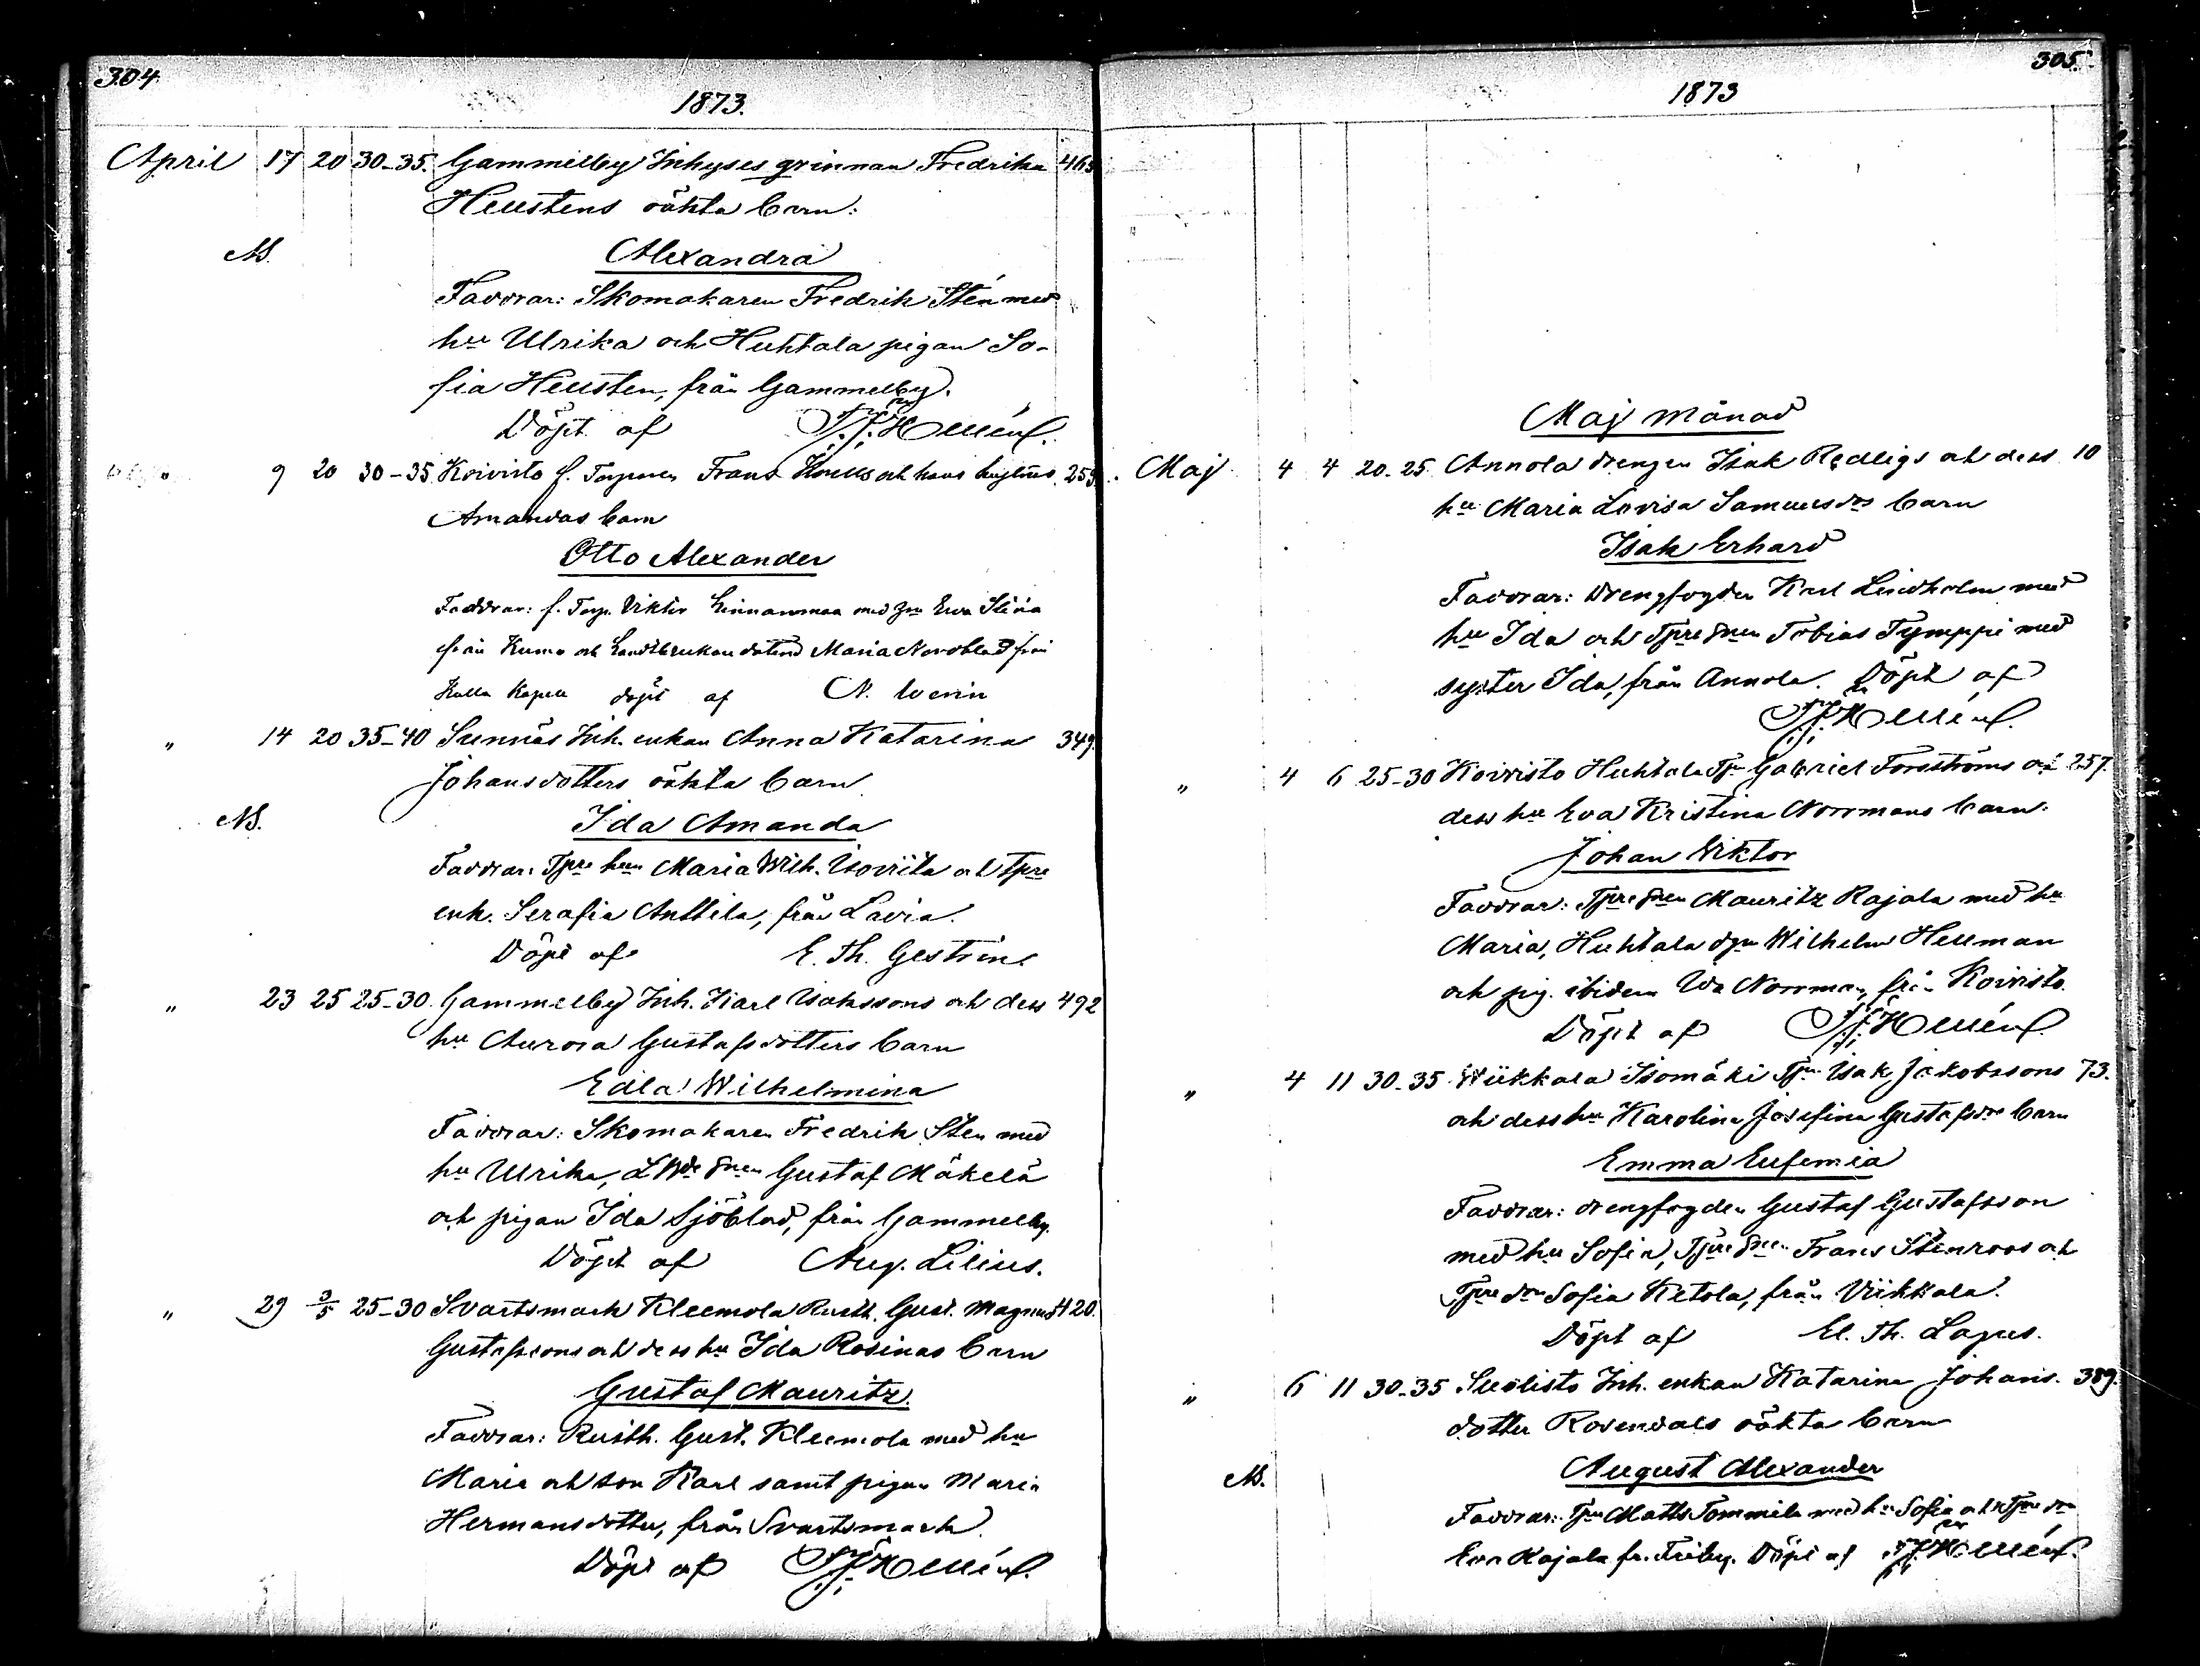 304.
1873.
April 17 20 30-35. Gammelby Inhyses qvinnan Fredrika 465
Hellstens oäkta barn:
NB.
Alexandra
Faddrar: Skomakaren Fredrik Stén med
hu Ulrika och Huhtala pigan So-
fia Hellsten, från Gammelby.
Döpt af F. J. Hellén
" 9 20 30-35 Koivisto f. Torparen Frans och hans hustrus 259.
Amandas barn
Otto Alexander
Faddrar: f. Torp. Viktor Linnanmaa med Eva Stina
från Kumo och dotren Maria Nordblad från
Kulla Kapell döpt af N. Wenin
" 14 20 35-40 Sunnäs Inh. enkan Anna Katarina 349.
Johansdotters oäkta barn
NB.
Ida Amanda
Faddrar: Tpre hun Maria Wilh. Isoviita och tpre
enk. Serafia Anttila, från Lavia.
Döpt af E. Th. Gestrin
" 23 25 25-30. Gammelby Inh. Karl Isakssons och dess 492
hu Aurora Gustafsdotters barn
Edla Wilhelmina
Faddrar: Skomakaren Fredrik Sten med
hu Ulrika, Gustaf Mäkelä
och pigan Ida Sjöblad, från Gammelby.
Döpt af Aug. Lilius.
" 29 3/5 25-30 Svartsmark Kleemola Rusth. Gust. Magnus 420.
Gustafssons och dess hu Ida Rosinas barn
Gustaf Mauritz.
Faddrar: Rusth. Gust. Kleemola med hu
Maria och son Karl samt pigan Maria
Hermansdotter, från Svartsmark.
Döpt af F. J. Hellén.
305.
1873
Maj månad
Maj 4 4 20-25 Annola drengen Isak Redligs och dess 10
hu Maria Lovisa Samuelsdrs barn
Isak Erhard
Faddrar: Drengfogden Karl Lindholm med
hu Ida och Tpre Snen Tobias Tymppi med
syster Ida, från Annola. Döpt af
F. J. Hellén.
" 4 6 25-30 Koivisto Huhtala Tpn Gabriel Forsströms och 257.
dess hu Eva Kristina Norrmans barn:
Johan Wiktor
Faddrar: Tpre Snen Mauritz Rajala med hu
Maria, Huhtala dgn Wilhelm Hellman
och pig. ibidem Norrman, från Koivisto.
Döpt af F. J. Hellén.
" 4 11 30-35 Wiikkala Isomäki Tpn Isak Jakobssons 73.
och dess hu Karolina Josefina Gustafsdrs barn
Emma Eufemia
Faddrar: drengfogden Gustaf Gustafsson
med hu Sofia, Tpre Snen Frans Stenroos och
Tpre drn Sofia Ketola, från Viikkala.
Döpt af El. Th. Lagus.
" 6 11 30-35 Suolisto Inh. enkan Katarina Johans- 389.
dotter Rosendals oäkta barn
NB.
August Alexander
Faddrar: Tpn Matts Tommila med hu Sofia och Tpre drn
Eva Rajala fr. Friby. Döpt af F. J. Hellén.